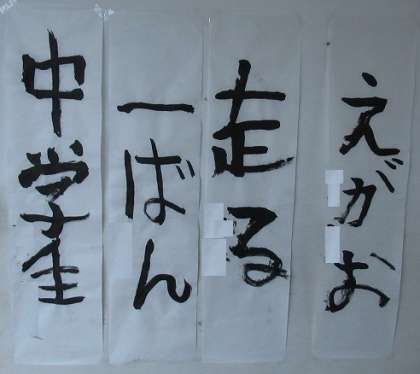 えがお
走る
一ばん
中学生